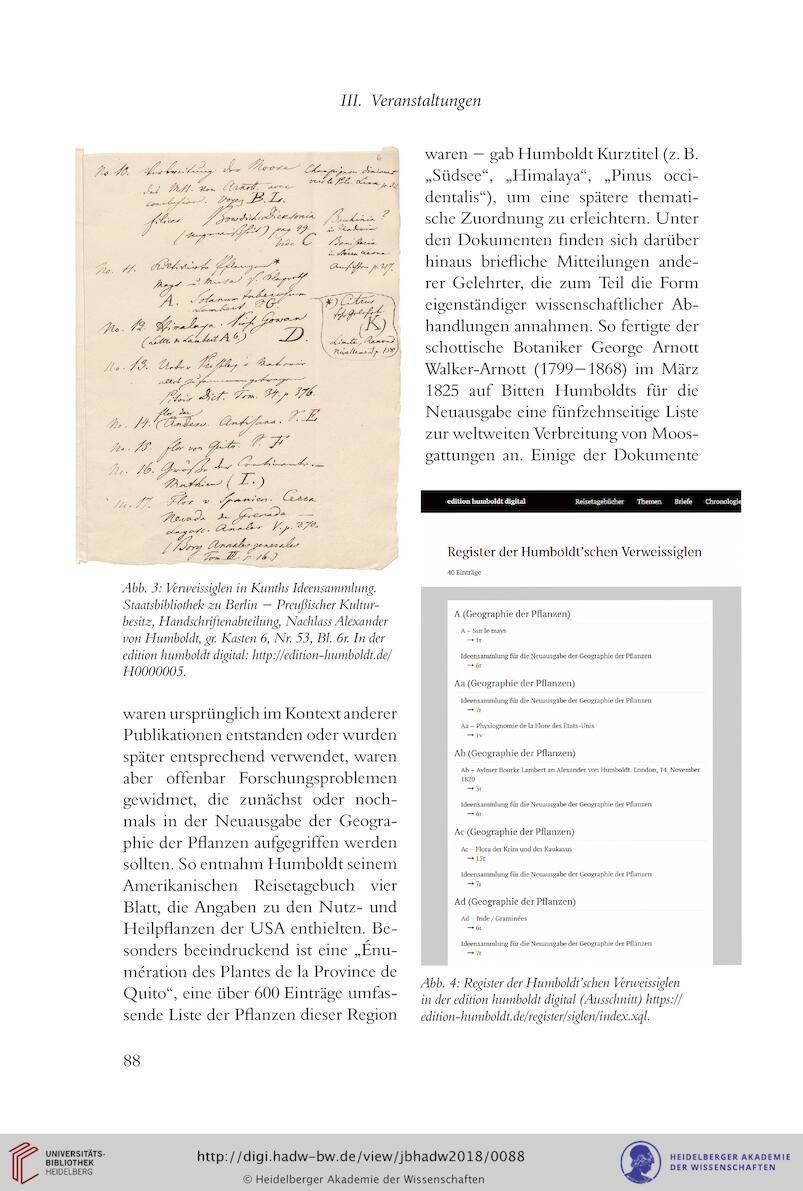 III. Veranstaltungen
No. 10.
B. L.
pag 49
C
No. 11.
A.
No. 12. Himalaya.
D.
No. 13.
Dict. Tom. 34. p 376.
No. 14.
No. 15. flor von Quito.
No. 16.
(I.)
Flor v. Spanien.
Nevada de Grenada
Annales generales
K
Abb. 3: Verweissiglen in Kunths Ideensammlung.
Staatsbibliothek zu Berlin – Preußischer Kultur-
besitz, Handschriftenabteilung, Nachlass Alexander
von Humboldt, gr. Kasten 6, Nr. 53, Bl. 6r. In der
edition humboldt digital: http://edition-humboldt.de/
H0000005.
waren ursprünglich im Kontext anderer
Publikationen entstanden oder wurden
später entsprechend verwendet, waren
aber offenbar Forschungsproblemen
gewidmet, die zunächst oder noch-
mals in der Neuausgabe der Geogra-
phie der Pflanzen aufgegriffen werden
sollten. So entnahm Humboldt seinem
Amerikanischen Reisetagebuch vier
Blatt, die Angaben zu den Nutz- und
Heilpflanzen der USA enthielten. Be-
sonders beeindruckend ist eine „Énu-
mération des Plantes de la Province de
Quito“, eine über 600 Einträge umfas-
sende Liste der Pflanzen dieser Region
waren – gab Humboldt Kurztitel (z. B.
„Südsee“, „Himalaya“, „Pinus occi-
dentalis“), um eine spätere themati-
sche Zuordnung zu erleichtern. Unter
den Dokumenten finden sich darüber
hinaus briefliche Mitteilungen ande-
rer Gelehrter, die zum Teil die Form
eigenständiger wissenschaftlicher Ab-
handlungen annahmen. So fertigte der
schottische Botaniker George Arnott
Walker-Arnott (1799–1868) im März
1825 auf Bitten Humboldts für die
Neuausgabe eine fünfzehnseitige Liste
zur weltweiten Verbreitung von Moos-
gattungen an. Einige der Dokumente
edition humboldt digital Reisetagebücher Themen Briefe Chronologie
Register der Humboldt'schen Verweissiglen
40 Einträge
A (Geographie der Pflanzen)
A – Sur le mays
→ 1r
Ideensammlung für die Neuausgabe der Geographie der Pflanzen
→ 6r
Aa (Geographie der Pflanzen)
Ideensammlung für die Neuausgabe der Geographie der Pflanzen
→ 7r
Aa – Physiognomie de la Flore des États-Unis
→ 1v
Ab (Geographie der Pflanzen)
Ab – Aylmer Bourke Lambert an Alexander von Humboldt. London, 14. November
1820
→ 3r
Ideensammlung für die Neuausgabe der Geographie der Pflanzen
→ 6r
Ac (Geographie der Pflanzen)
Ac – Flora der Krim und des Kaukasus
→ 15r
Ideensammlung für die Neuausgabe der Geographie der Pflanzen
→ 7r
Ad (Geographie der Pflanzen)
Ad – Inde / Graminées
→ 6r
Ideensammlung für die Neuausgabe der Geographie der Pflanzen
→ 7r
Abb. 4: Register der Humboldt'schen Verweissiglen
in der edition humboldt digital (Ausschnitt) https://
edition-humboldt.de/register/siglen/index.xql.
88
UNIVERSITÄTS-
BIBLIOTHEK
HEIDELBERG
http://digi.hadw-bw.de/view/jbhadw2018/0088
© Heidelberger Akademie der Wissenschaften
HEIDELBERGER AKADEMIE
DER WISSENSCHAFTEN